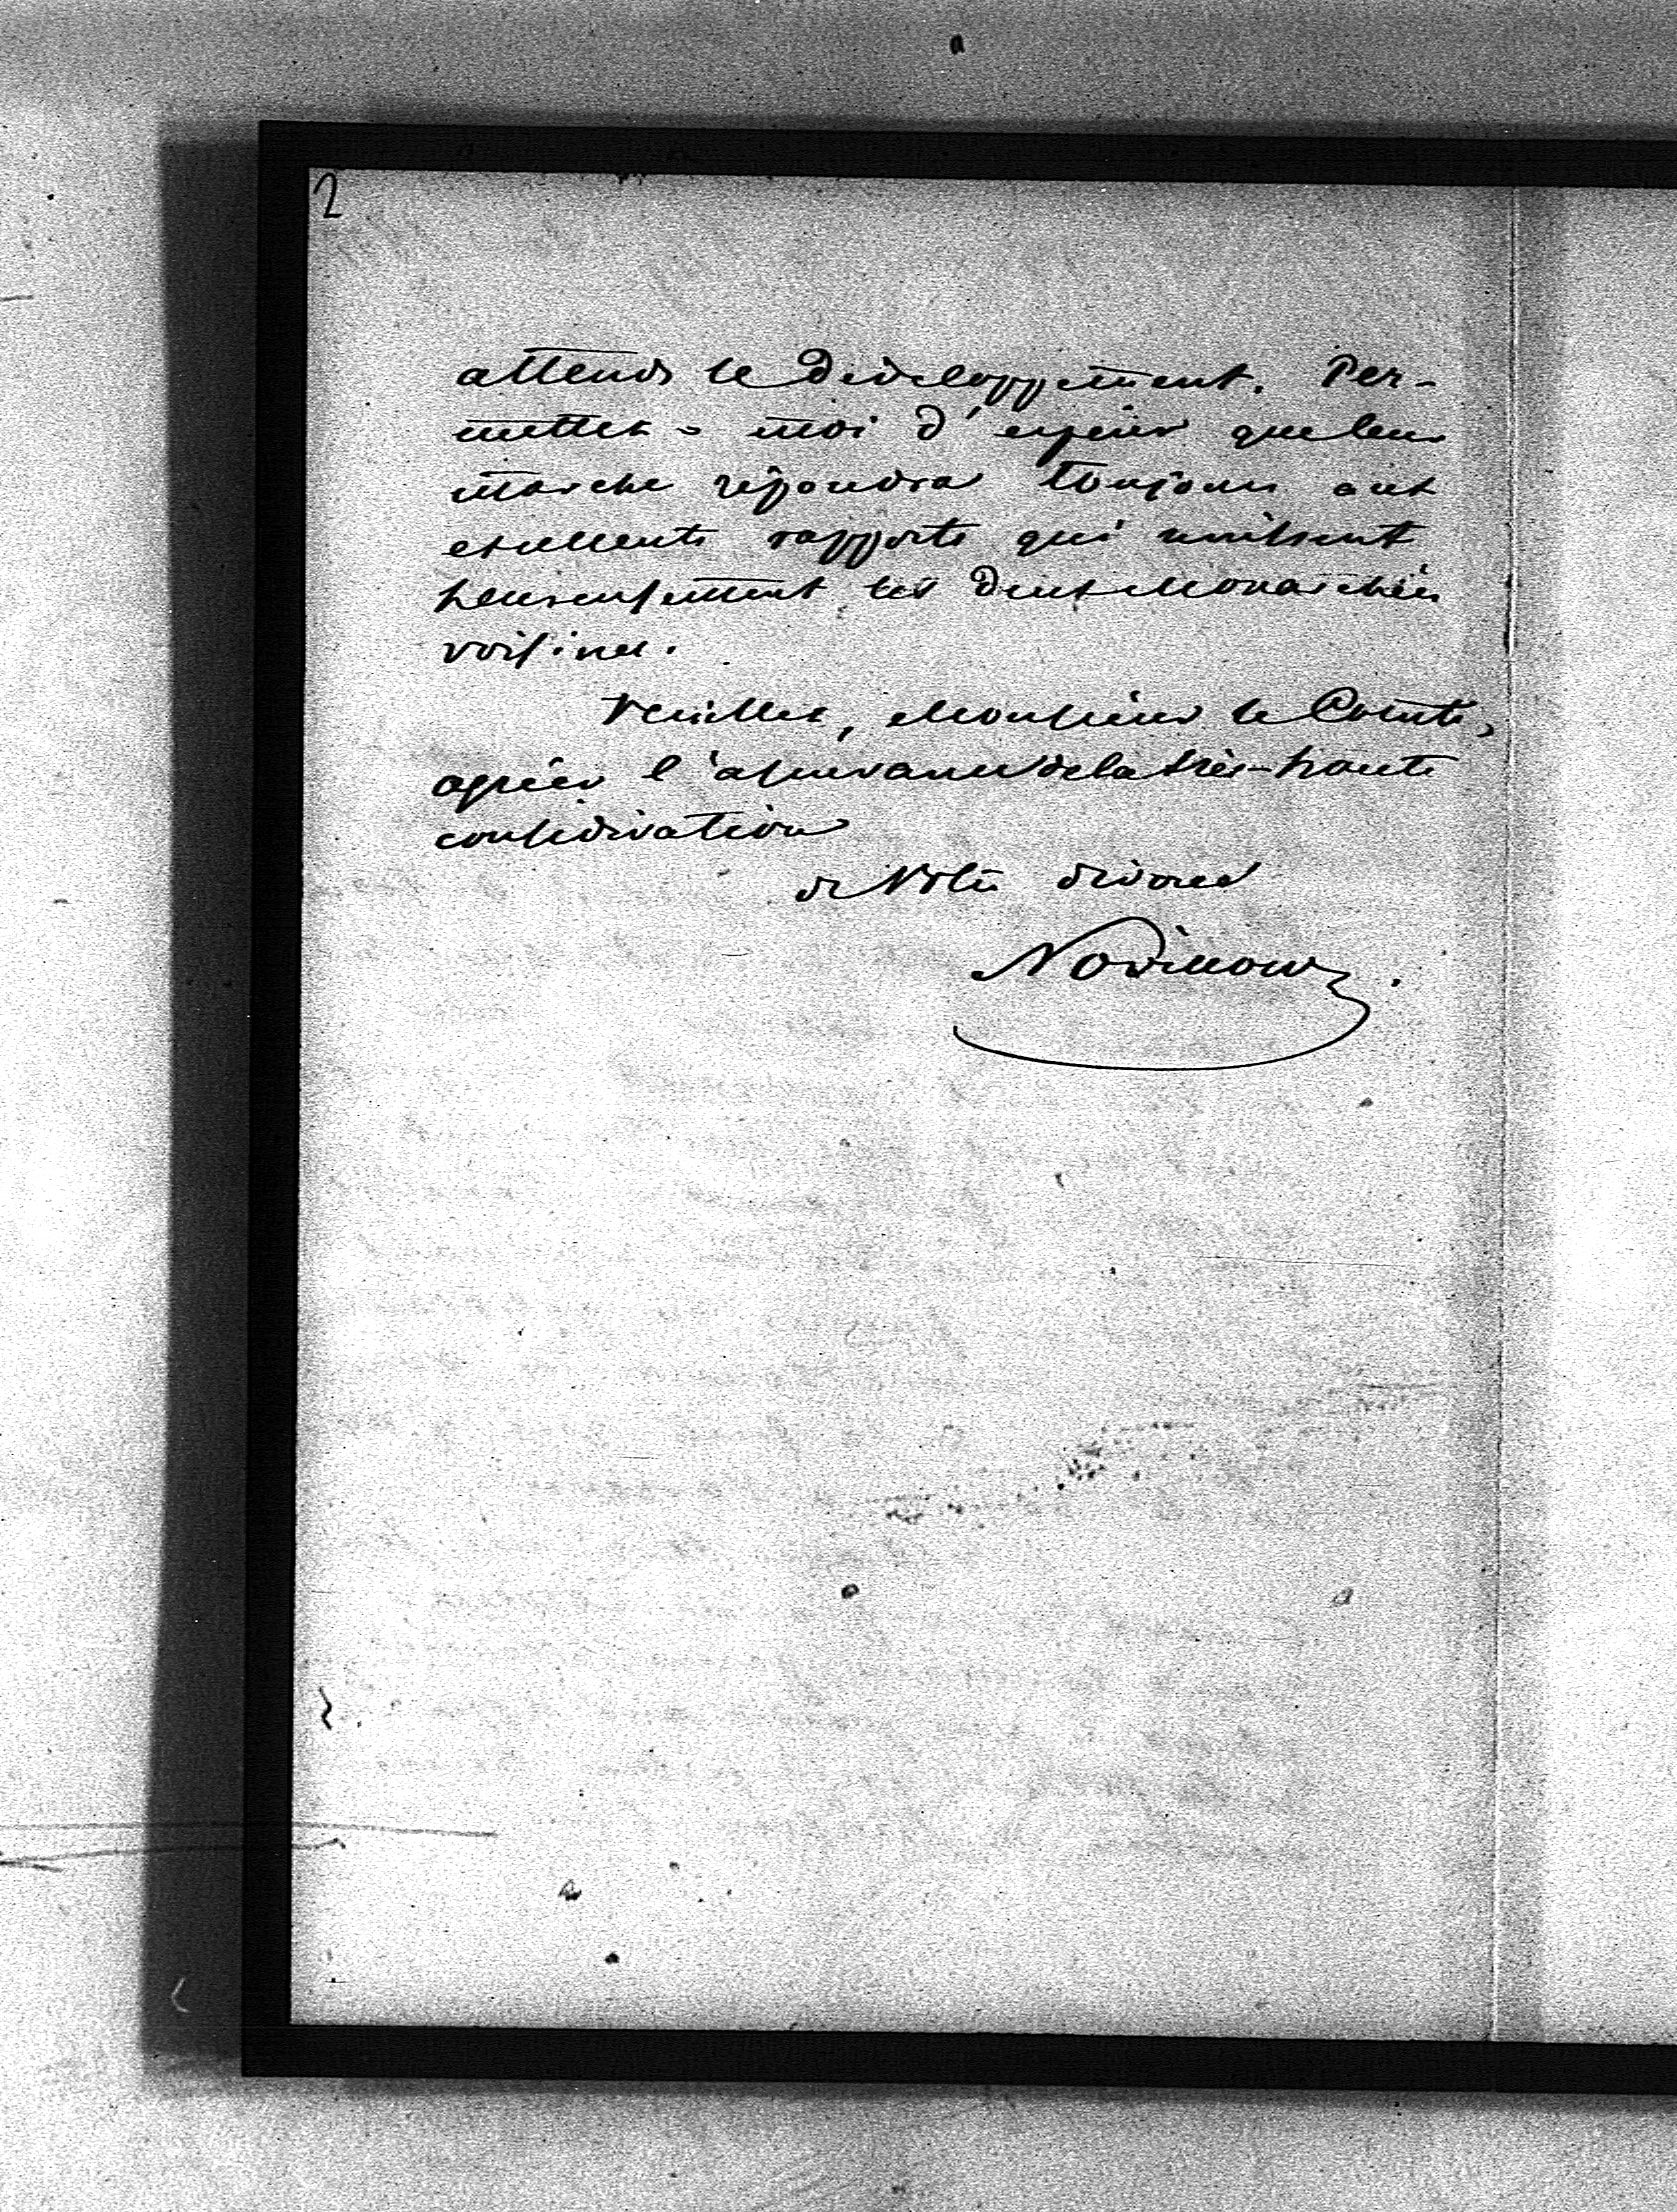 2
attends le développement. Per-
mettez-moi d'espérer que leur
marche répondra toujours aux
excellents rapports qui unissent
heureusement les deux Monarchies
voisines.
Veuillez, Monsieur le Comte,
agréer l'assurance de la très-haute
considération
de Votre dévoué
Novikow.